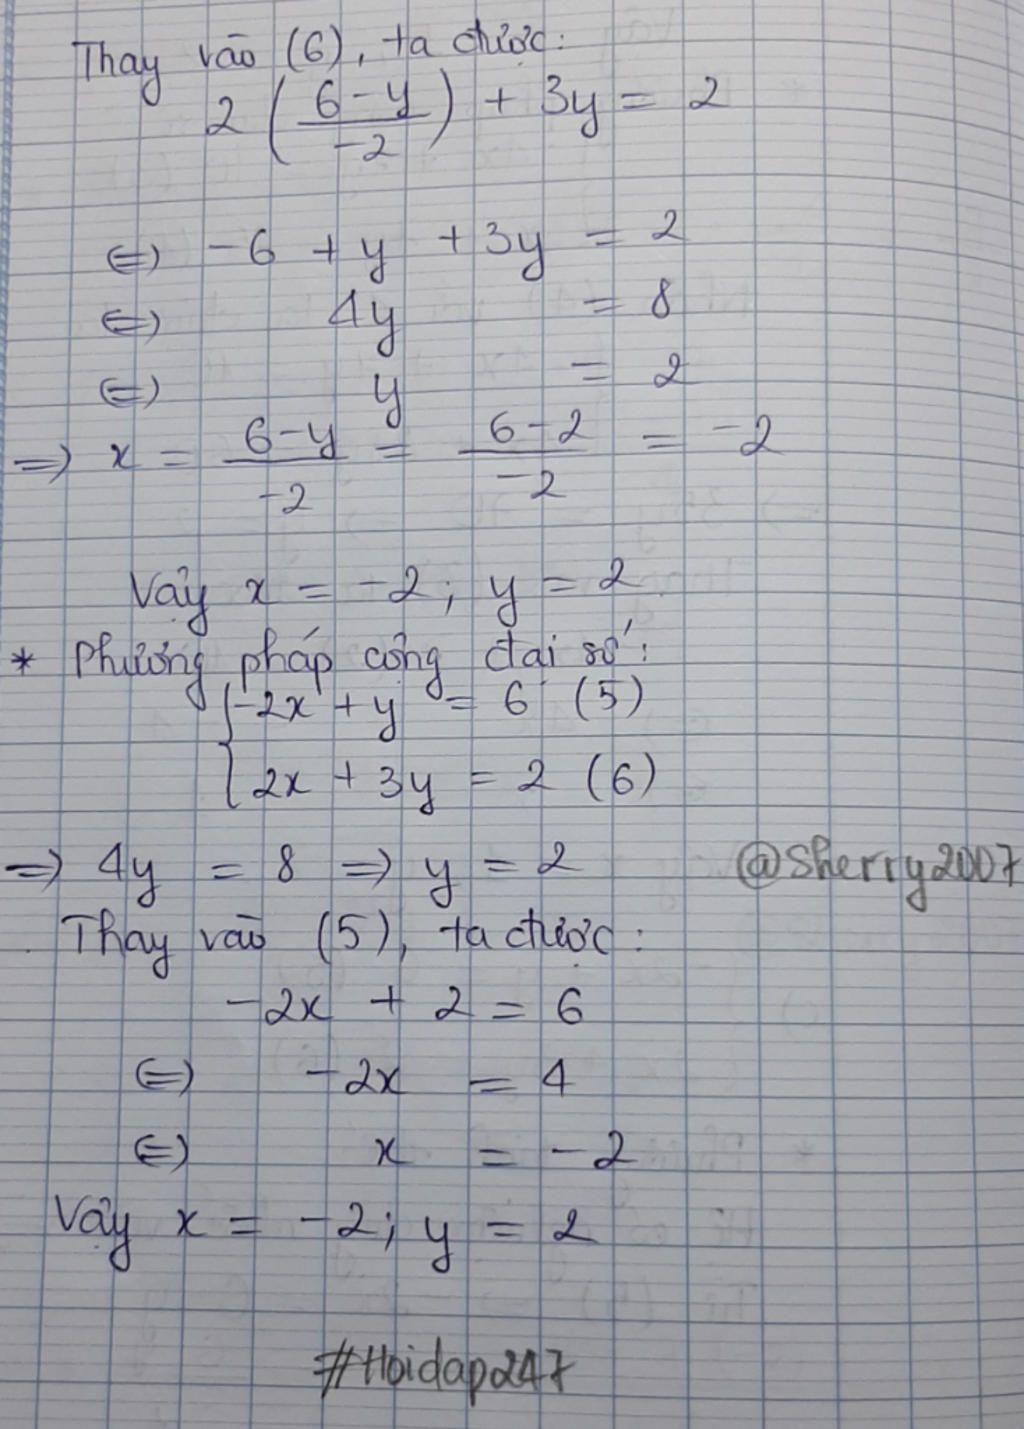 Thay vào (6), ta được:
2 ( (6-y)/(-2) ) + 3y = 2
⇔ -6 + y + 3y = 2
⇔ 4y = 8
⇔ y = 2
⇒ x = (6-y)/(-2) = (6-2)/(-2) = -2
Vậy x = -2; y = 2
* Phương pháp cộng đại số:
{ -2x + y = 6 (5)
{ 2x + 3y = 2 (6)
⇒ 4y = 8 ⇒ y = 2 @Sherry2007
Thay vào (5), ta được:
-2x + 2 = 6
⇔ -2x = 4
⇔ x = -2
Vậy x = -2; y = 2
#Hoidap247